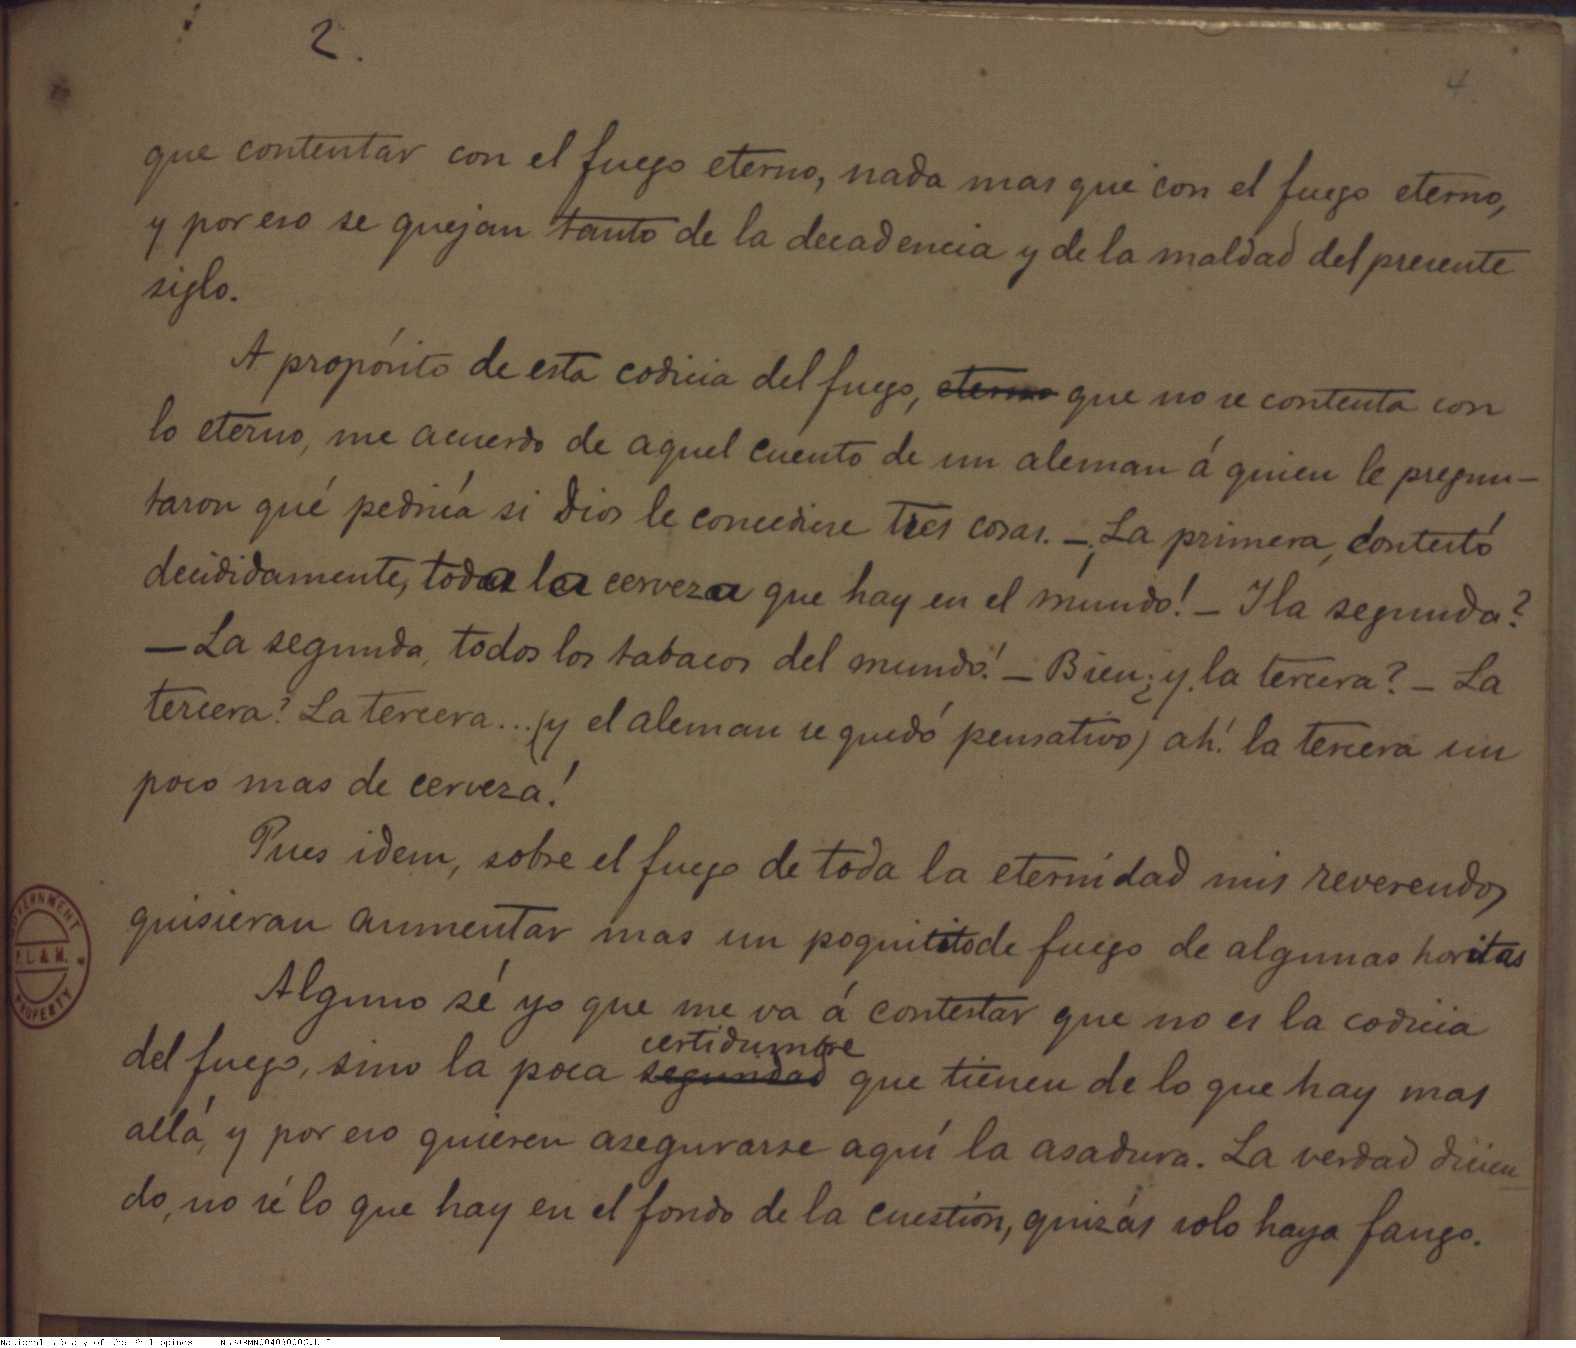 2.
4
que contentar con el fuego eterno, nada mas que con el fuego eterno,
y por eso se quejan tanto de la decadencia y de la maldad del presente
siglo.
A propósito de esta codicia del fuego, eterno que no se contenta con
lo eterno, me acuerdo de aquel cuento de un aleman á quien le pregun-
taron qué pediría si Dios le concediese tres cosas. —¡La primera, contestó
decididamente, toda la cerveza que hay en el mundo! — Y la segunda?
— La segunda, todos los tabacos del mundo! — Bien ¿y la tercera? — La
tercera? La tercera... (y el aleman se quedó pensativo) ah! la tercera un
poco mas de cerveza!
Pues idem, sobre el fuego de toda la eternidad mis reverendos
quisieran aumentar mas un poquitito de fuego de algunas horitas
Alguno sé yo que me va á contestar que no es la codicia
certidumbre
del fuego, sino la poca seguridad que tienen de lo que hay mas
allá, y por eso quieren asegurarse aquí la asadura. La verdad dicien
do, no sé lo que hay en el fondo de la cuestión, quizás solo haya fango.
GOVERNMENT
P. L. & M.
PROPERTY
National Library of the Philippines